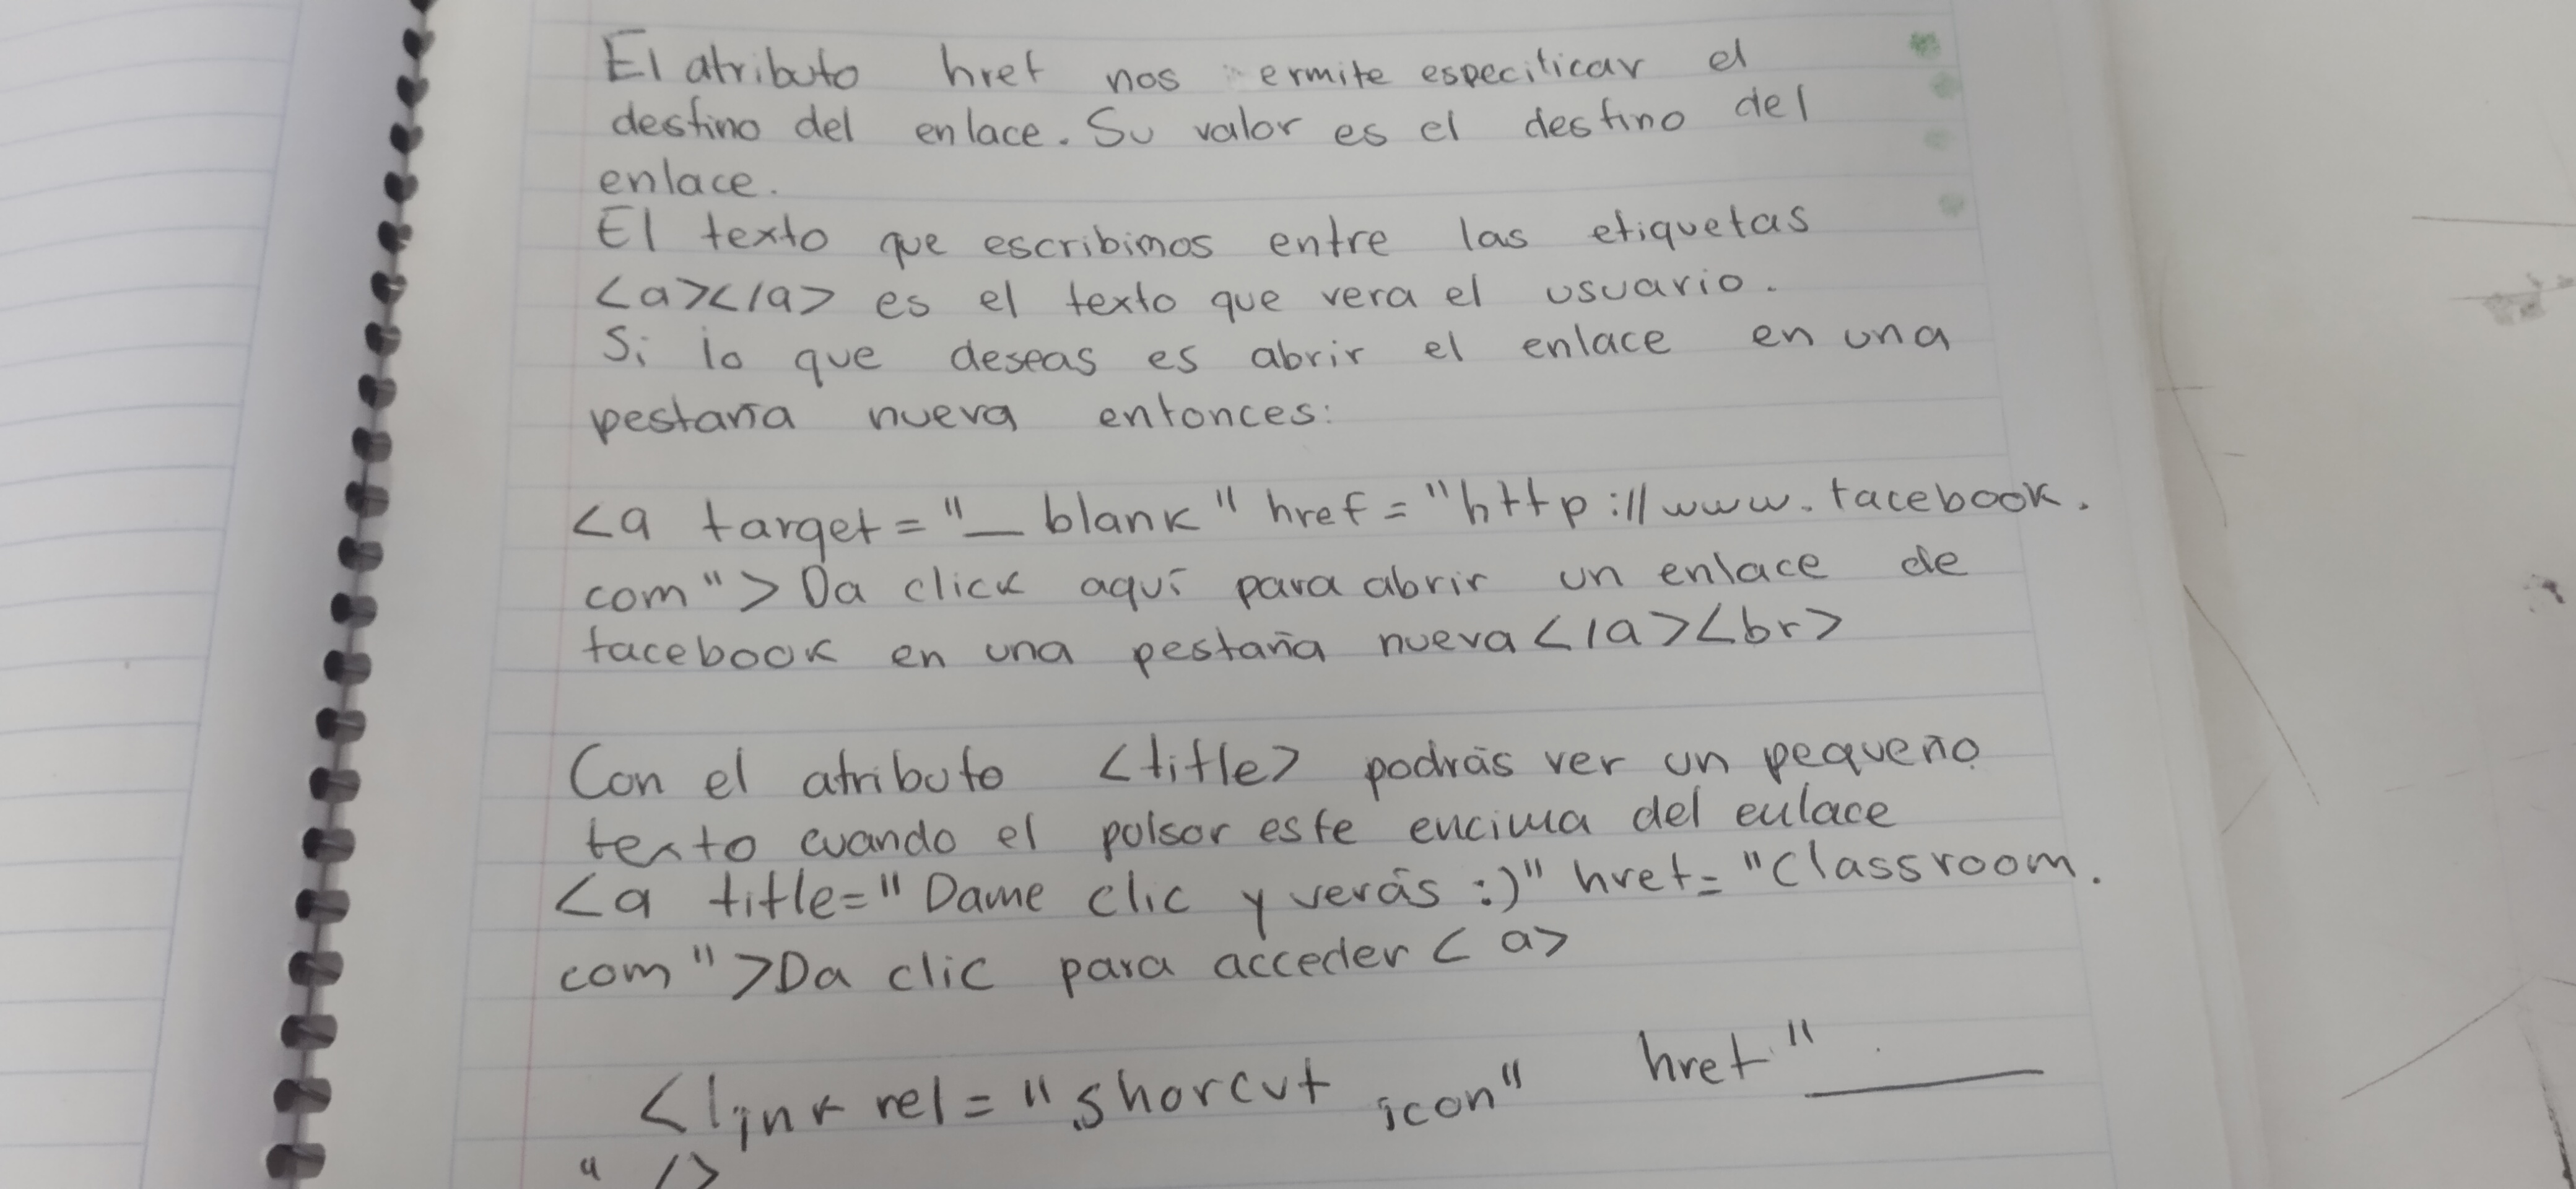 El atributo href nos ermite especificar el
destino del enlace. Su valor es el destino del
enlace.
El texto que escribimos entre las etiquetas
<a></a> es el texto que vera el usuario.
Si lo que deseas es abrir el enlace en una
pestaña nueva entonces:
<a target="_blank" href="http://www.facebook.
com">Da click aquí para abrir un enlace de
facebook en una pestaña nueva</a><br>
Con el atributo <title> podrás ver un pequeño
texto cuando el polsor este encima del enlace
<a title="Dame clic y verás :)" href="classroom.
com">Da clic para acceder< a>
<link rel="shorcut icon" href"____
" />